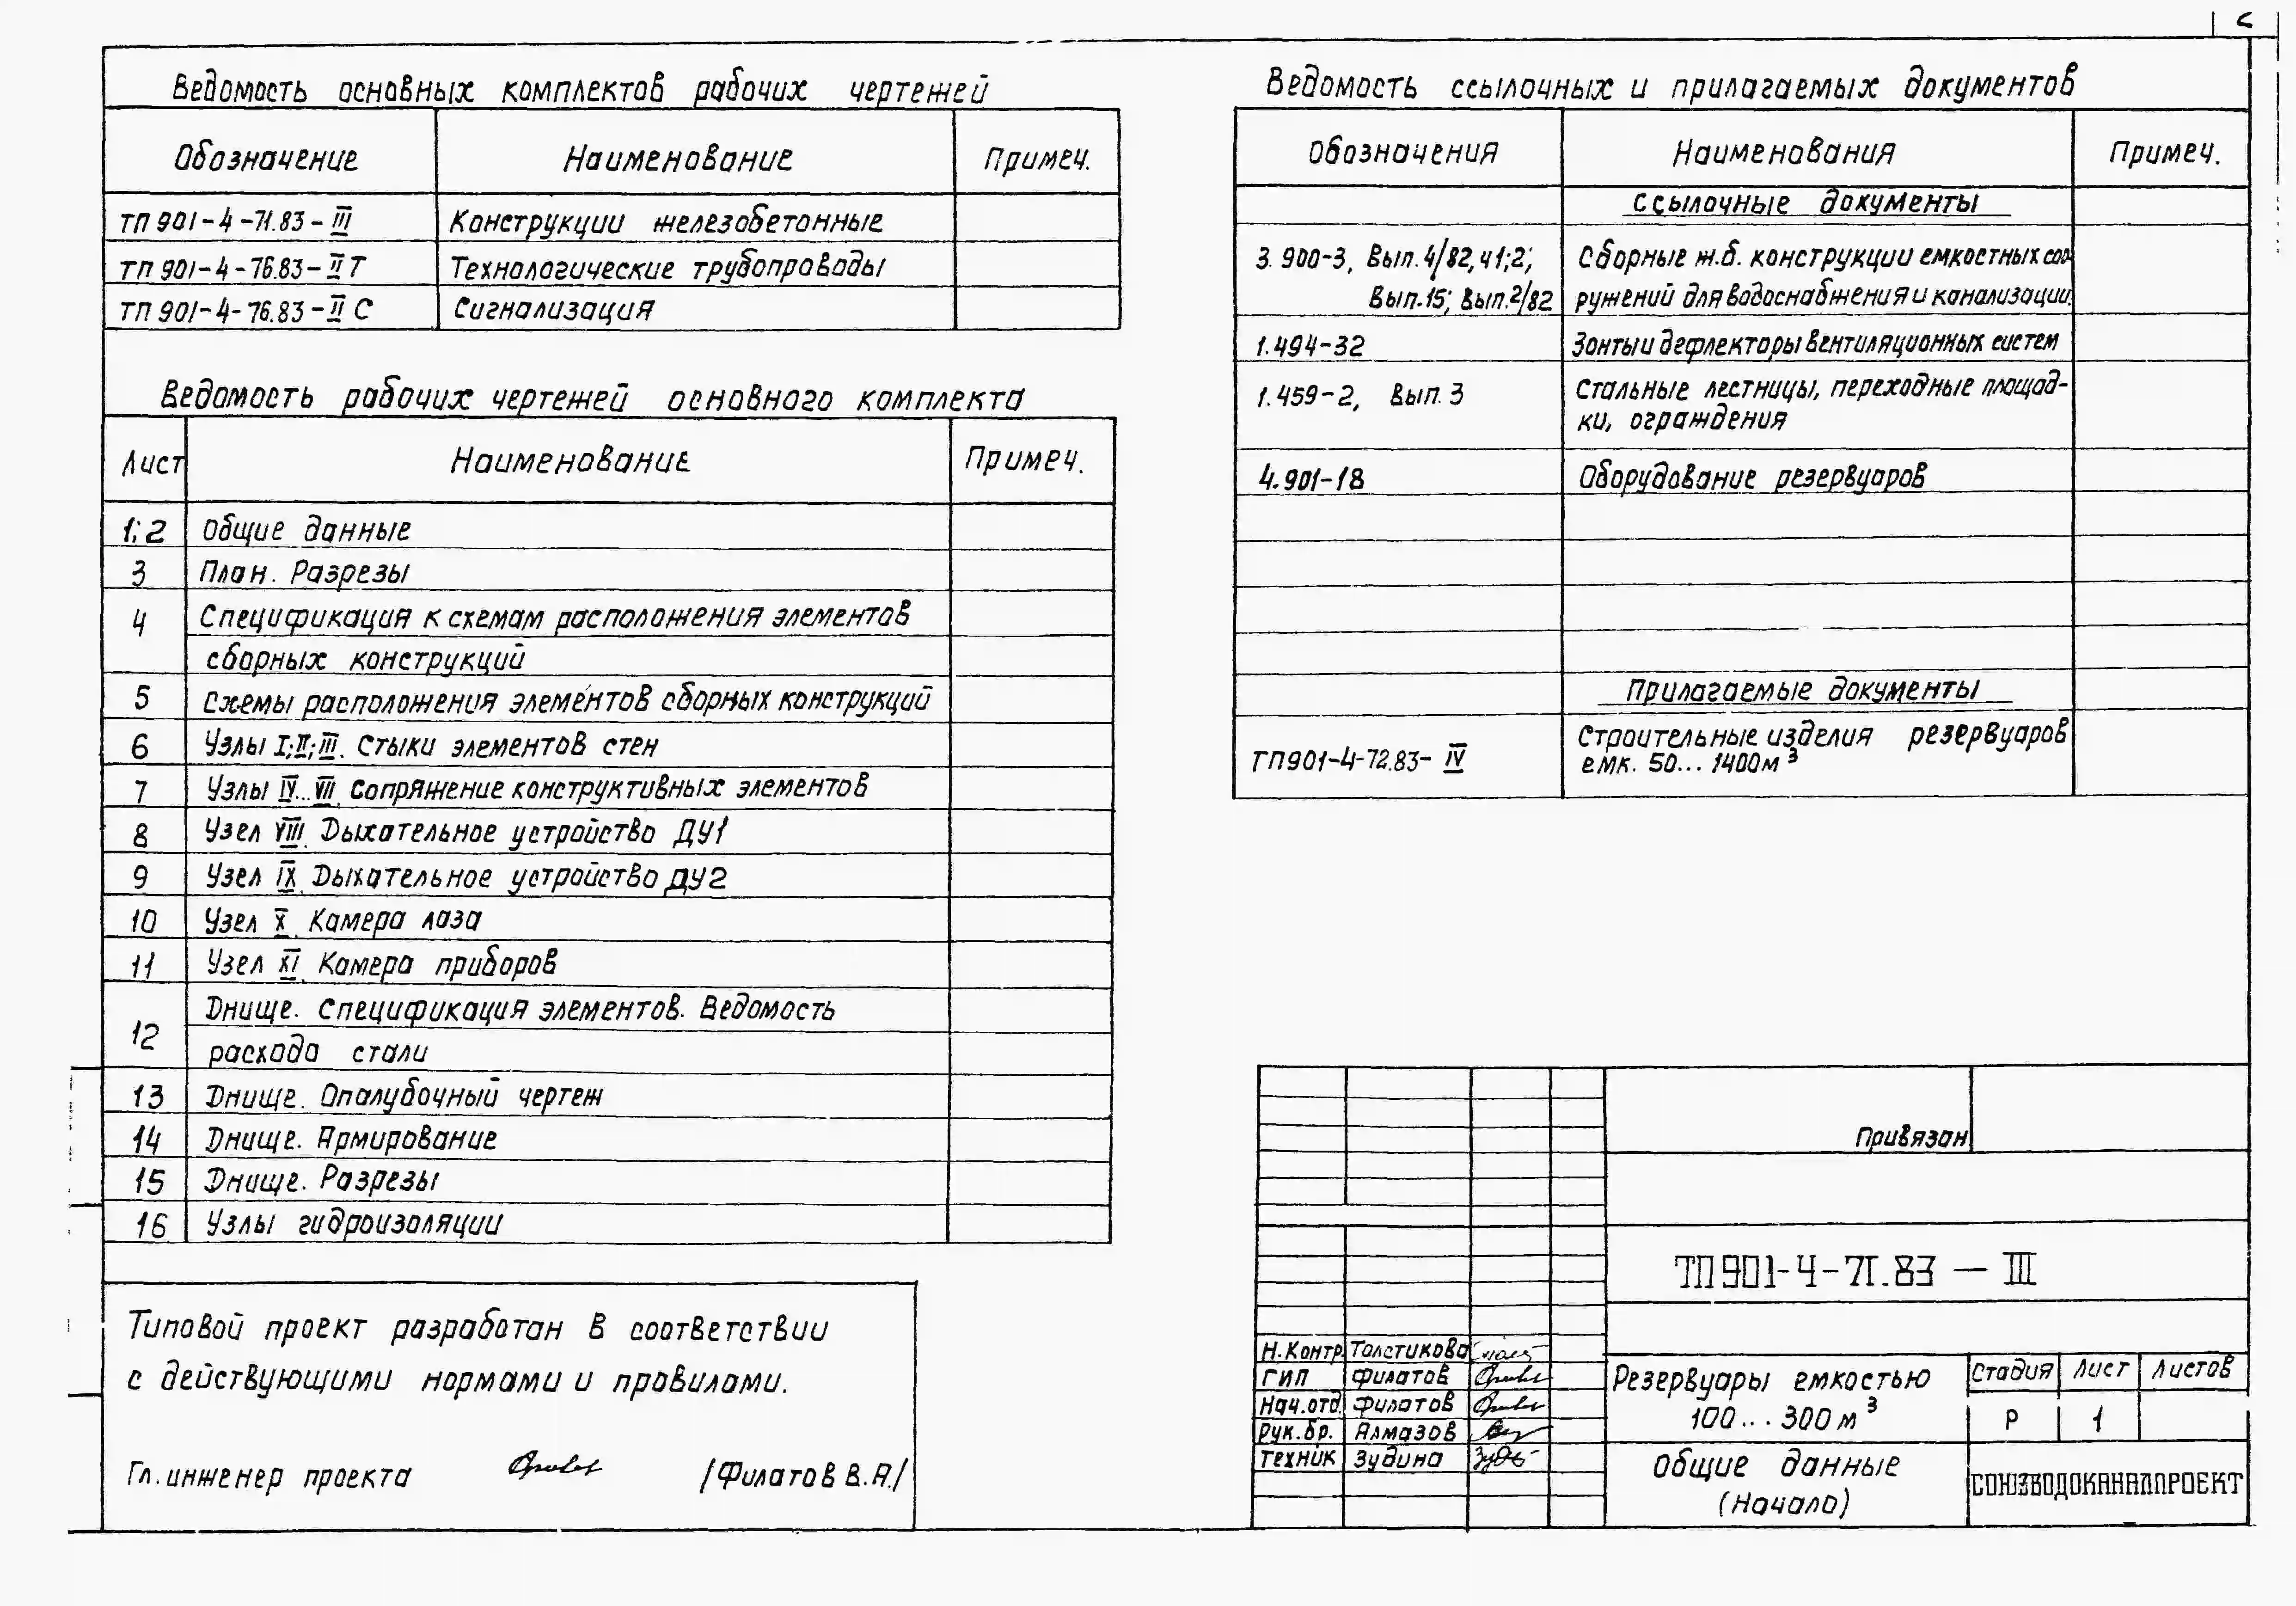 Ведомость основных комплектов рабочих чертежей
Обозначение Наименование Примеч.
ТП 901-4-71.83-III Конструкции железобетонные
ТП 901-4-76.83-II Т Технологические трубопроводы
ТП 901-4-76.83-II С Сигнализация
Ведомость рабочих чертежей основного комплекта
Лист Наименование Примеч.
1; 2 Общие данные
3 План. Разрезы
4 Спецификация к схемам расположения элементов
сборных конструкций
5 Схемы расположения элементов сборных конструкций
6 Узлы I; II; III. Стыки элементов стен
7 Узлы IV...VII. Сопряжение конструктивных элементов
8 Узел VIII. Дыхательное устройство ДУ1
9 Узел IX. Дыхательное устройство ДУ2
10 Узел X. Камера лаза
11 Узел XI. Камера приборов
12 Днище. Спецификация элементов. Ведомость
расхода стали
13 Днище. Опалубочный чертеж
14 Днище. Армирование
15 Днище. Разрезы
16 Узлы гидроизоляции
Типовой проект разработан в соответствии
с действующими нормами и правилами.
Гл. инженер проекта /Филатов В.А./
Ведомость ссылочных и прилагаемых документов
Обозначения Наименования Примеч.
Ссылочные документы
3. 900-3, Вып. 4/82, ч1;2; Сборные ж.б. конструкции емкостных соо-
Вып. 15; Вып. 2/82 ружений для водоснабжения и канализации.
1.494-32 Зонты и дефлекторы вентиляционных систем
1.459-2, Вып. 3 Стальные лестницы, переходные площад-
ки, ограждения
4.901-18 Оборудование резервуаров
Прилагаемые документы
ТП901-4-72.83- IV Строительные изделия резервуаров
емк. 50... 1400м³
Привязан
ТП 901-4-71.83 — III
Н.Контр. Толстикова
ГИП Филатов
Нач.отд. Филатов
Рук.бр. Алмазов
Техник Зудина
Резервуары емкостью
100... 300 м³
Стадия Лист Листов
Р 1
Общие данные
(Начало)
СОЮЗВОДОКАНАЛПРОЕКТ